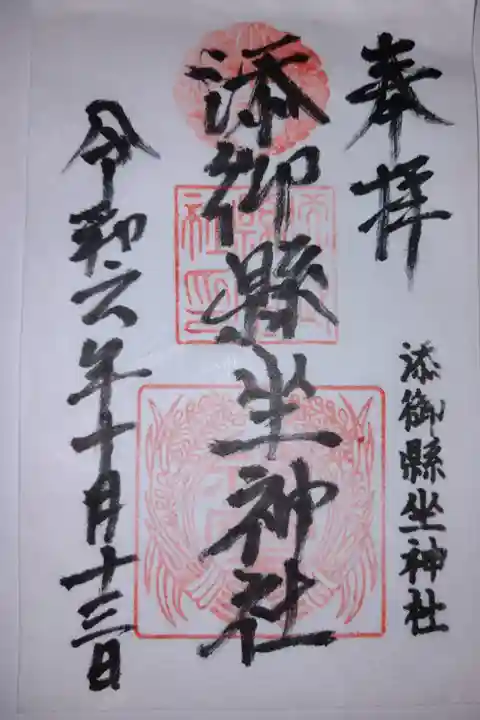 奉拝
添御縣坐神社
添御縣坐神社
令和六年十月十三日